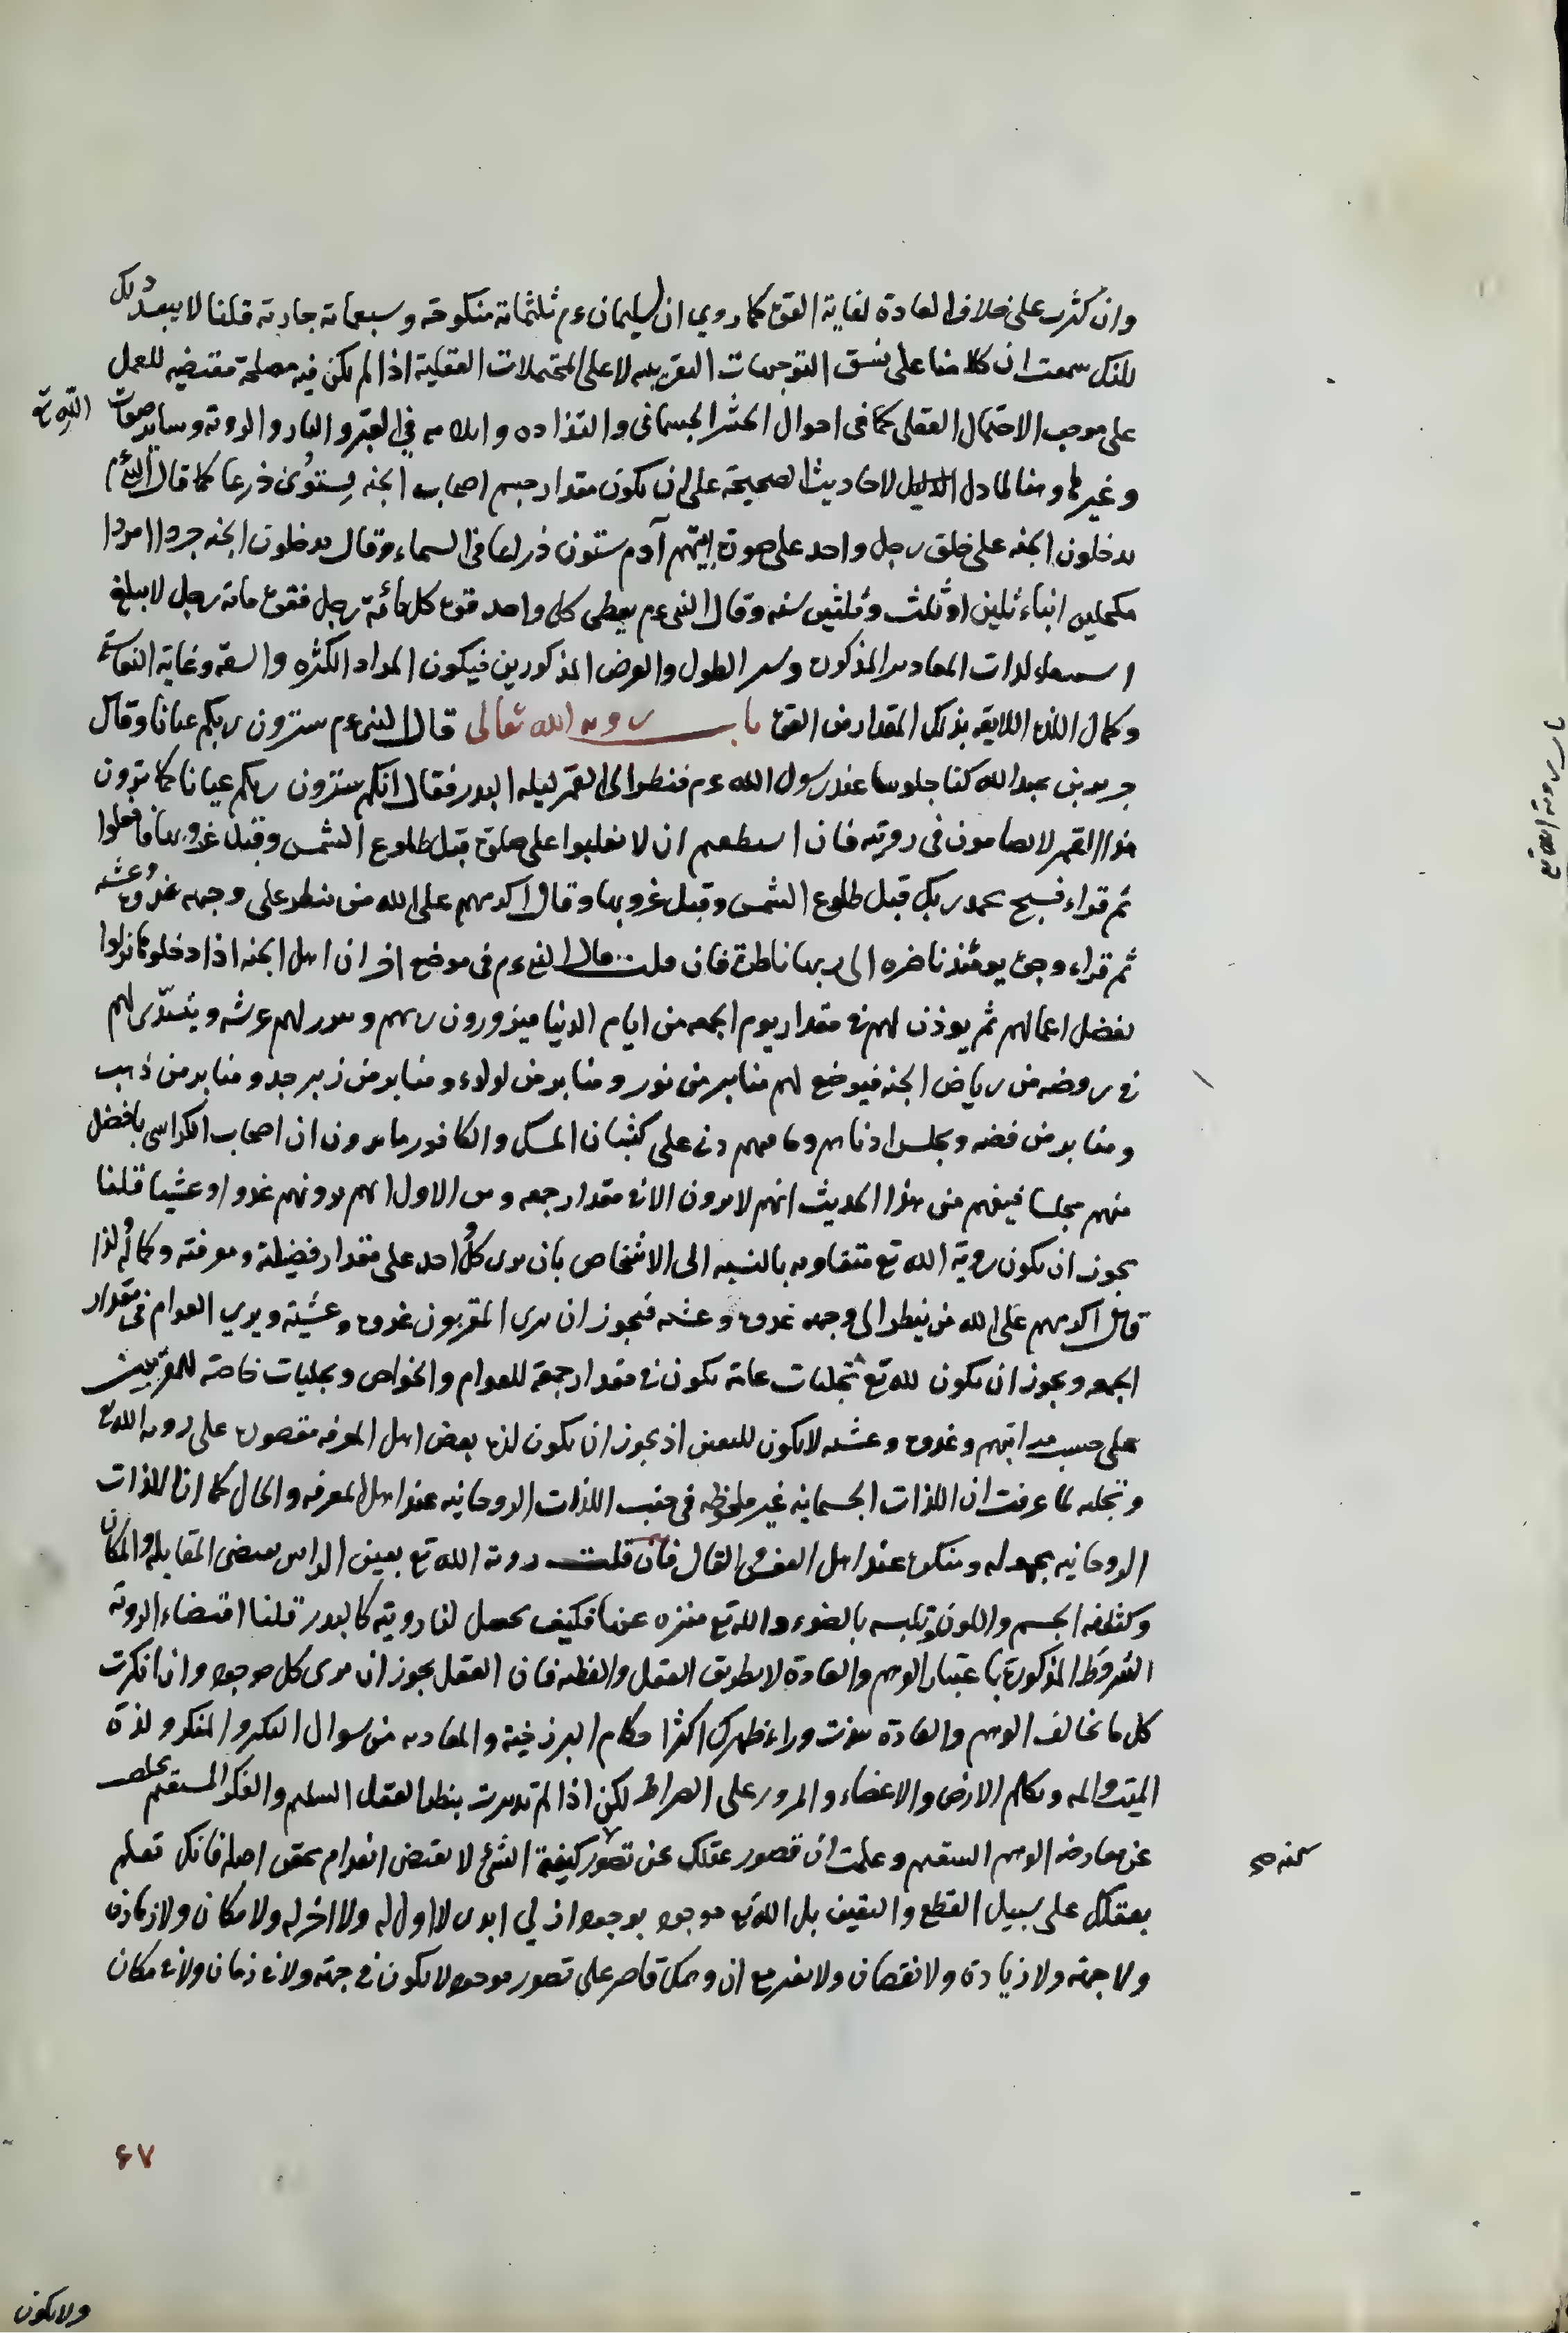 وان كثرت على خلاف العادة لغاية القوة كما روي ان لسليمان ءم ثلثمائة منكوحة وسبعمائة جارية قلنا لا يبعد ذلك
لكنك سمعت ان كلامنا على نسق التوجيهات التقريبيه لا على المحتملات العقلية اذا لم يكن فيه مصلحة مقتضيه للعمل
على موجب الاحتمال العقلى كما فى احوال الحشر الجسمانى والتذاذه وايلامه في القبر والنار والروية وساير صفات الله تع
وغيرها وهنا لما دل الاحاديث الصحيحة على ان يكون مقدار جسم اصحاب الجنه ستون ذرعا كما قال النبى ءم
يدخلون الجنه على خلق رجل واحد على صورة ابيهم آدم ستون ذراعا فى السماء وقال يدخلون الجنه جردا مردا
مكحلين ابناء ثلثين او ثلث وثلثين سنه وقال النبى ءم يعطى كل واحد قوة كل مائة رجل فقوة مائة رجل لا يبلغ
لذات المقادير المذكورة الطول والعرض المذكورين فيكون المراد الكثره والسعة وغاية
وكمال اللذة اللايقه بذلك المقدار من القوة باب روية الله تعالى قال النبى ءم سترون ربكم عيانا وقال
جرير بن عبد الله كنا جلوسا عند رسول الله ءم فنظر الى القمر ليله البدر فقال انكم سترون ربكم عيانا كما ترون
هذا القمر لا تضامون فى رويته فان استطعتم ان لا تغلبوا على صلوة قبل طلوع الشمس وقبل غروبها فافعلوا
ثم قراء فسبح بحمد ربك قبل طلوع الشمس وقبل غروبها وقال اكرمهم على الله من ينظر على وجهه غدوة وعشيه
ثم قراء وجوه يومئذ ناضره الى ربها ناظرة فان قلت قال النبى ءم فى موضع اخر ان اهل الجنه اذا دخلوها نزلوا
بفضل اعمالهم ثم يوذن لهم فى مقدار يوم الجمعه من ايام الدنيا فيزورون ربهم ويبرز لهم عرشه ويتبدّى لهم
فى روضه من رياض الجنه فيوضع لهم منابر من نور ومنابر من لولاء ومنابر من زبرجد ومنابر من ذهب
ومنابر من فضه ويجلس ادناهم وما فيهم دنى على كثبان المسك والكافور ما يرون ان اصحاب الكراسى بافضل
منهم مجلسا فيفهم من هذا الحديث انهم لا يرون الا فى مقدار جمعه ومن الاول انهم يرونهم غدوا وعشيا قلنا
يجوز ان يكون روية الله تع متفاوته بالنسبه الى الاشخاص بان يرى كل احد على مقدار فضيلة ومعرفته وكماله لذا
قال اكرمهم على الله من ينظر الى وجهه غدوة وعشيه فيجوز ان يرى المقربون غدوة وعشيته ويري العوام فى مقدار
الجمعه ويجوز ان يكون لله تع تجليات عامة يكون فى مقدار جمعة للعوام والخواص وتجليات خاصة للمقربين
على حسب مراتبهم وغدوة وعشيه لا يكون للبعض اذ يجوز ان يكون لذة بعض اهل المعرفه مقصورة على روية الله تع
وتجليه لما عرفت ان اللذات الجسمانيه غير ملحوظه فى جنب اللذات الروحانيه عند اهل المعرفه والحال كما ان اللذات
الروحانيه مجهوله ومنكرة عند اهل القال فان قلت روية الله تع بعين الراس يقتضى المقابله والمكان
وكثافه الجسم واللون وتلبسه بالضوء والله تع منزه عنها فكيف يحصل لنا رويته كالبدر قلنا اقتضاء الروية
الشروط المذكورة باعتبار الوهم والعادة لا بطريق العقل والفطنه فان العقل يجوز ان يرى كل موجود وان انكرت
كل ما يخالف الوهم والعادة وراء ظهرك اكثر احكام البرزخية والمعاديه من سوال النكير والمنكر ولذة
الميت والمه وتكلم الارض والاعضاء والمرور على الصراط لكن اذا لم تدبرت بنظر العقل السليم والفكر المستقيم
عن معارضه الوهم السقيم وعلمت ان قصور عقلك عن تصور كيفية الشئ لا يقتضى انعدام تحقق اصله فانك تعلم
بعقلك على سبيل القطع واليقين بل الله تع موجود بوجود ازلي ابدى لا اول له ولا اخر له ولا مكان ولا زمان
ولا جهته ولا زيادة ولا نقصان ولا تغير مع ان وهمك قاصر على تصور موجود لا يكون فى جهته ولا فى زمان ولا فى مكان
باب روية الله تع
٤٧
ولا يكون